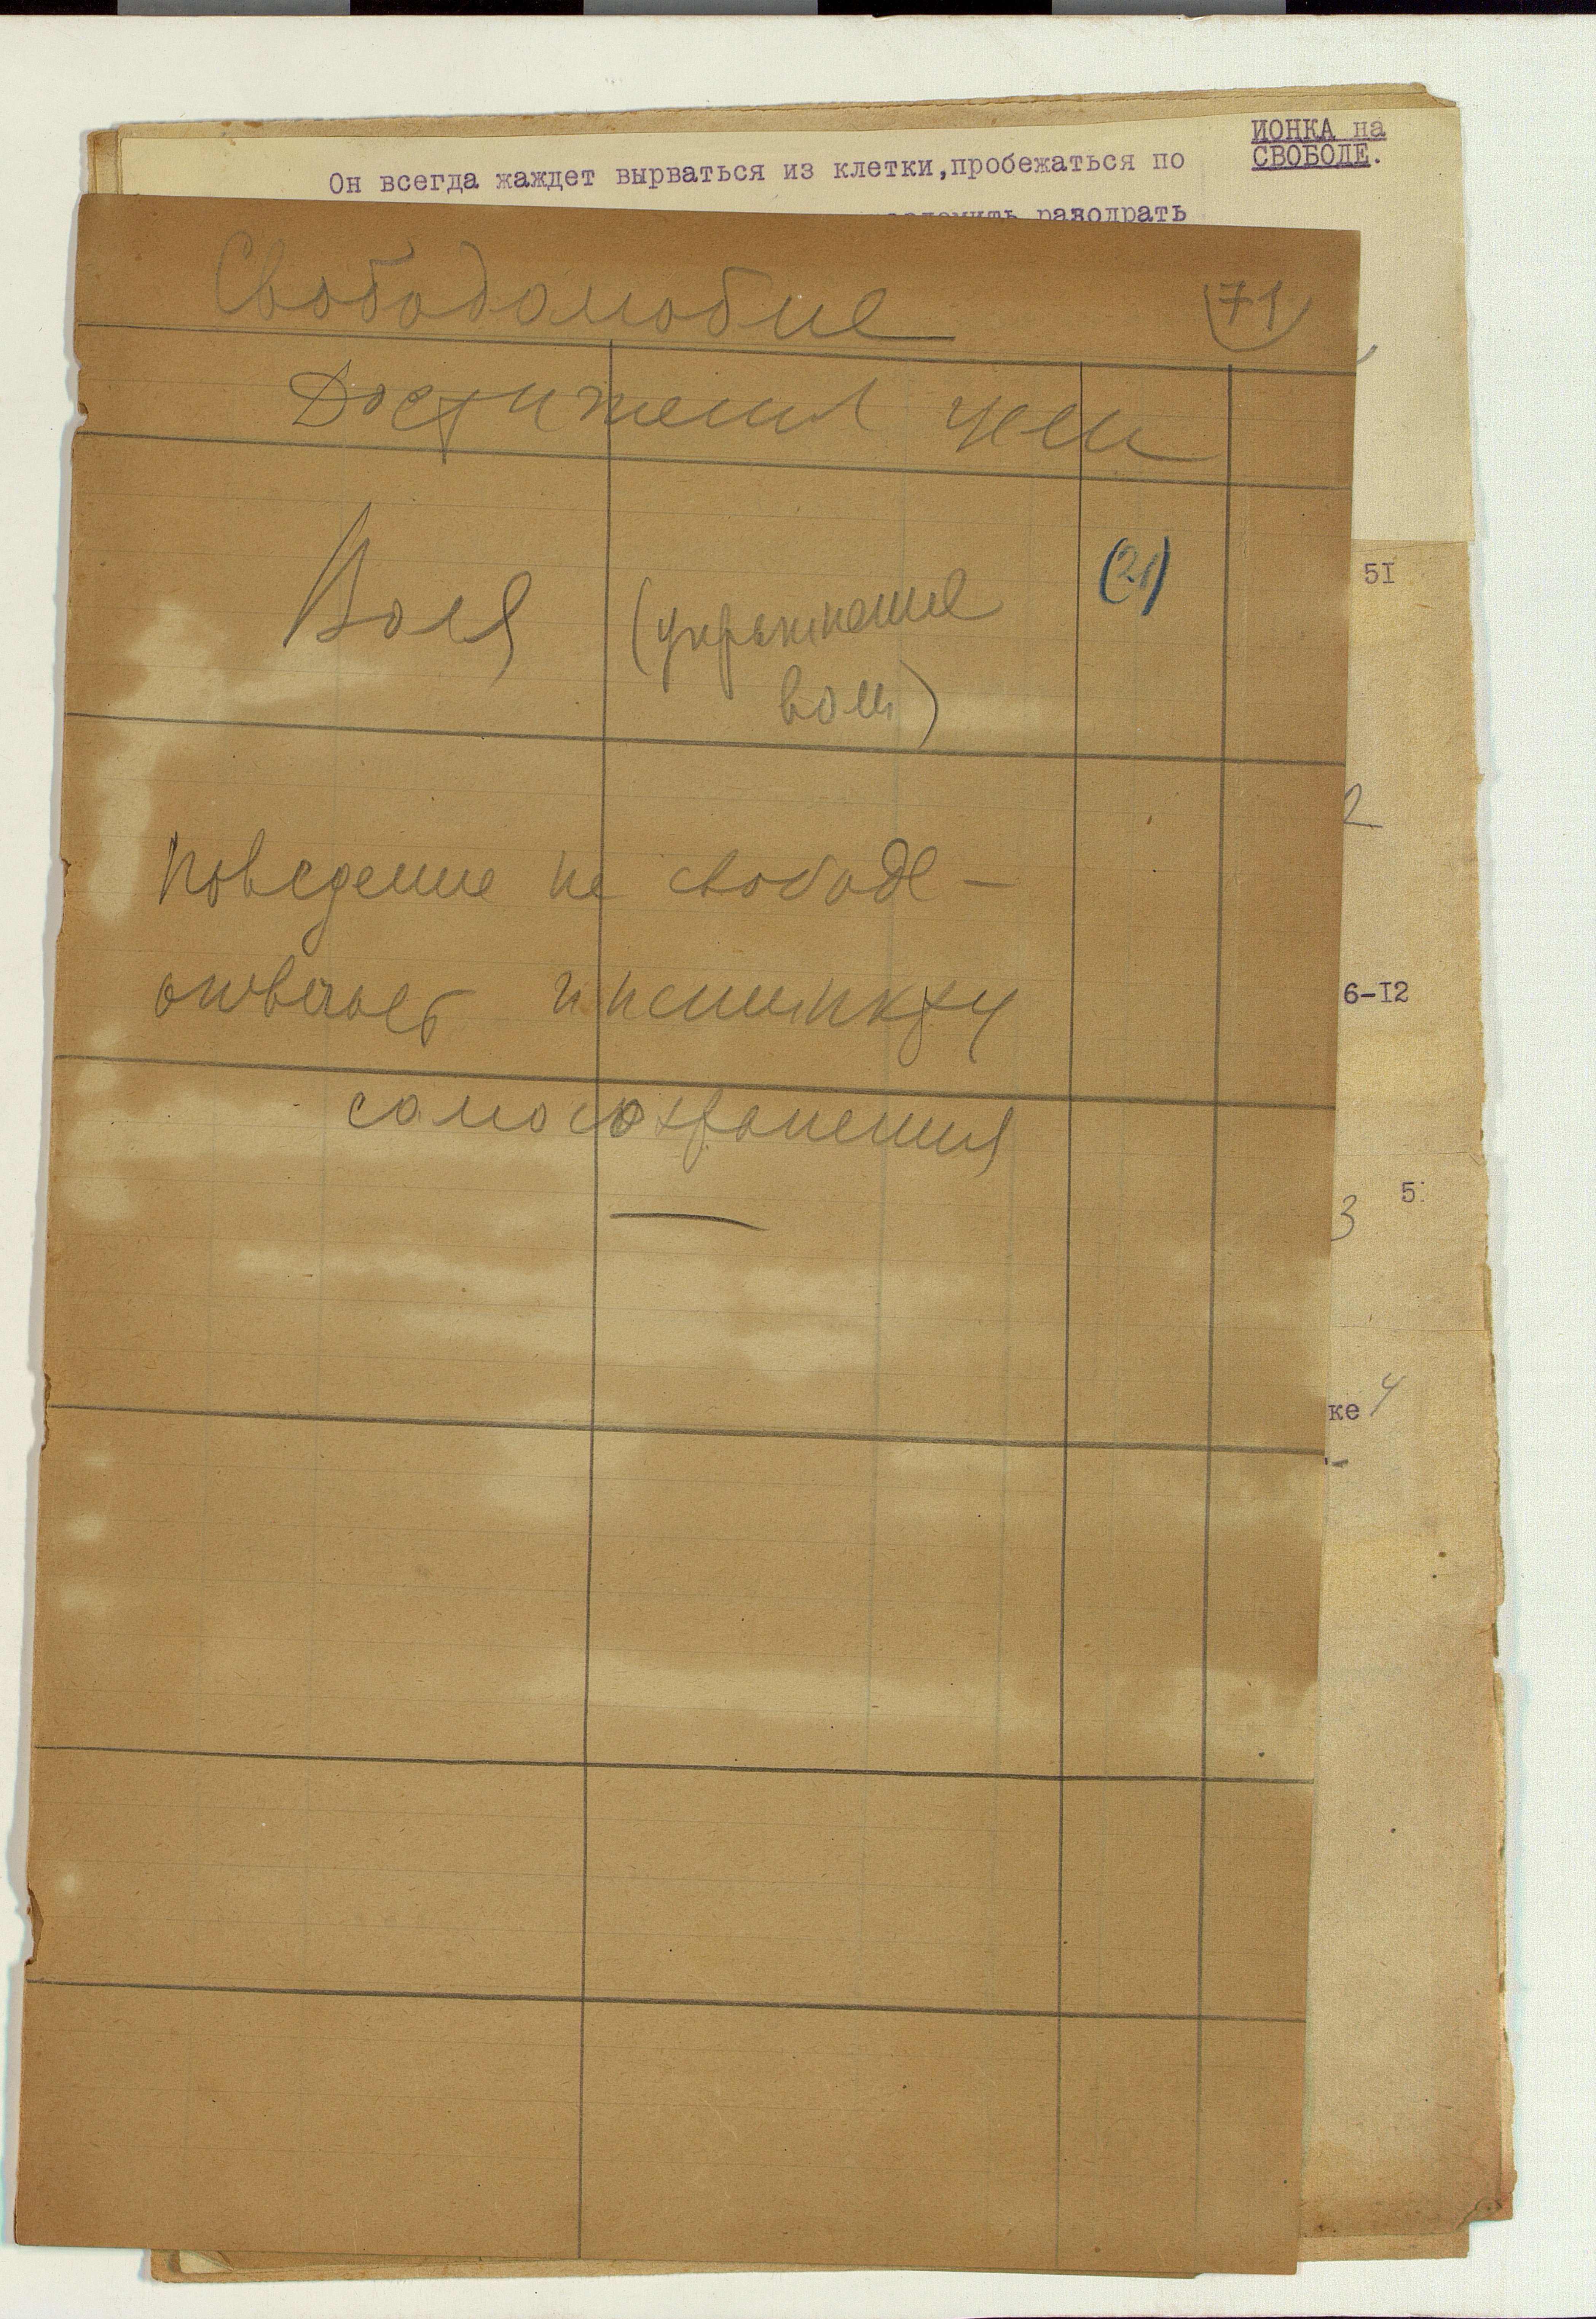 ИОНКА на
СВОБОДЕ.
Он всегда жаждет вырваться из клетки,пробежаться по
разодрать
Свободолюбие (71)
Достижения цели
Воля (упражнение (21)
воли)
5I
Поведение на свободе —
отвечает инстинкту
6-I2
самосохранения
3 5
ке 4